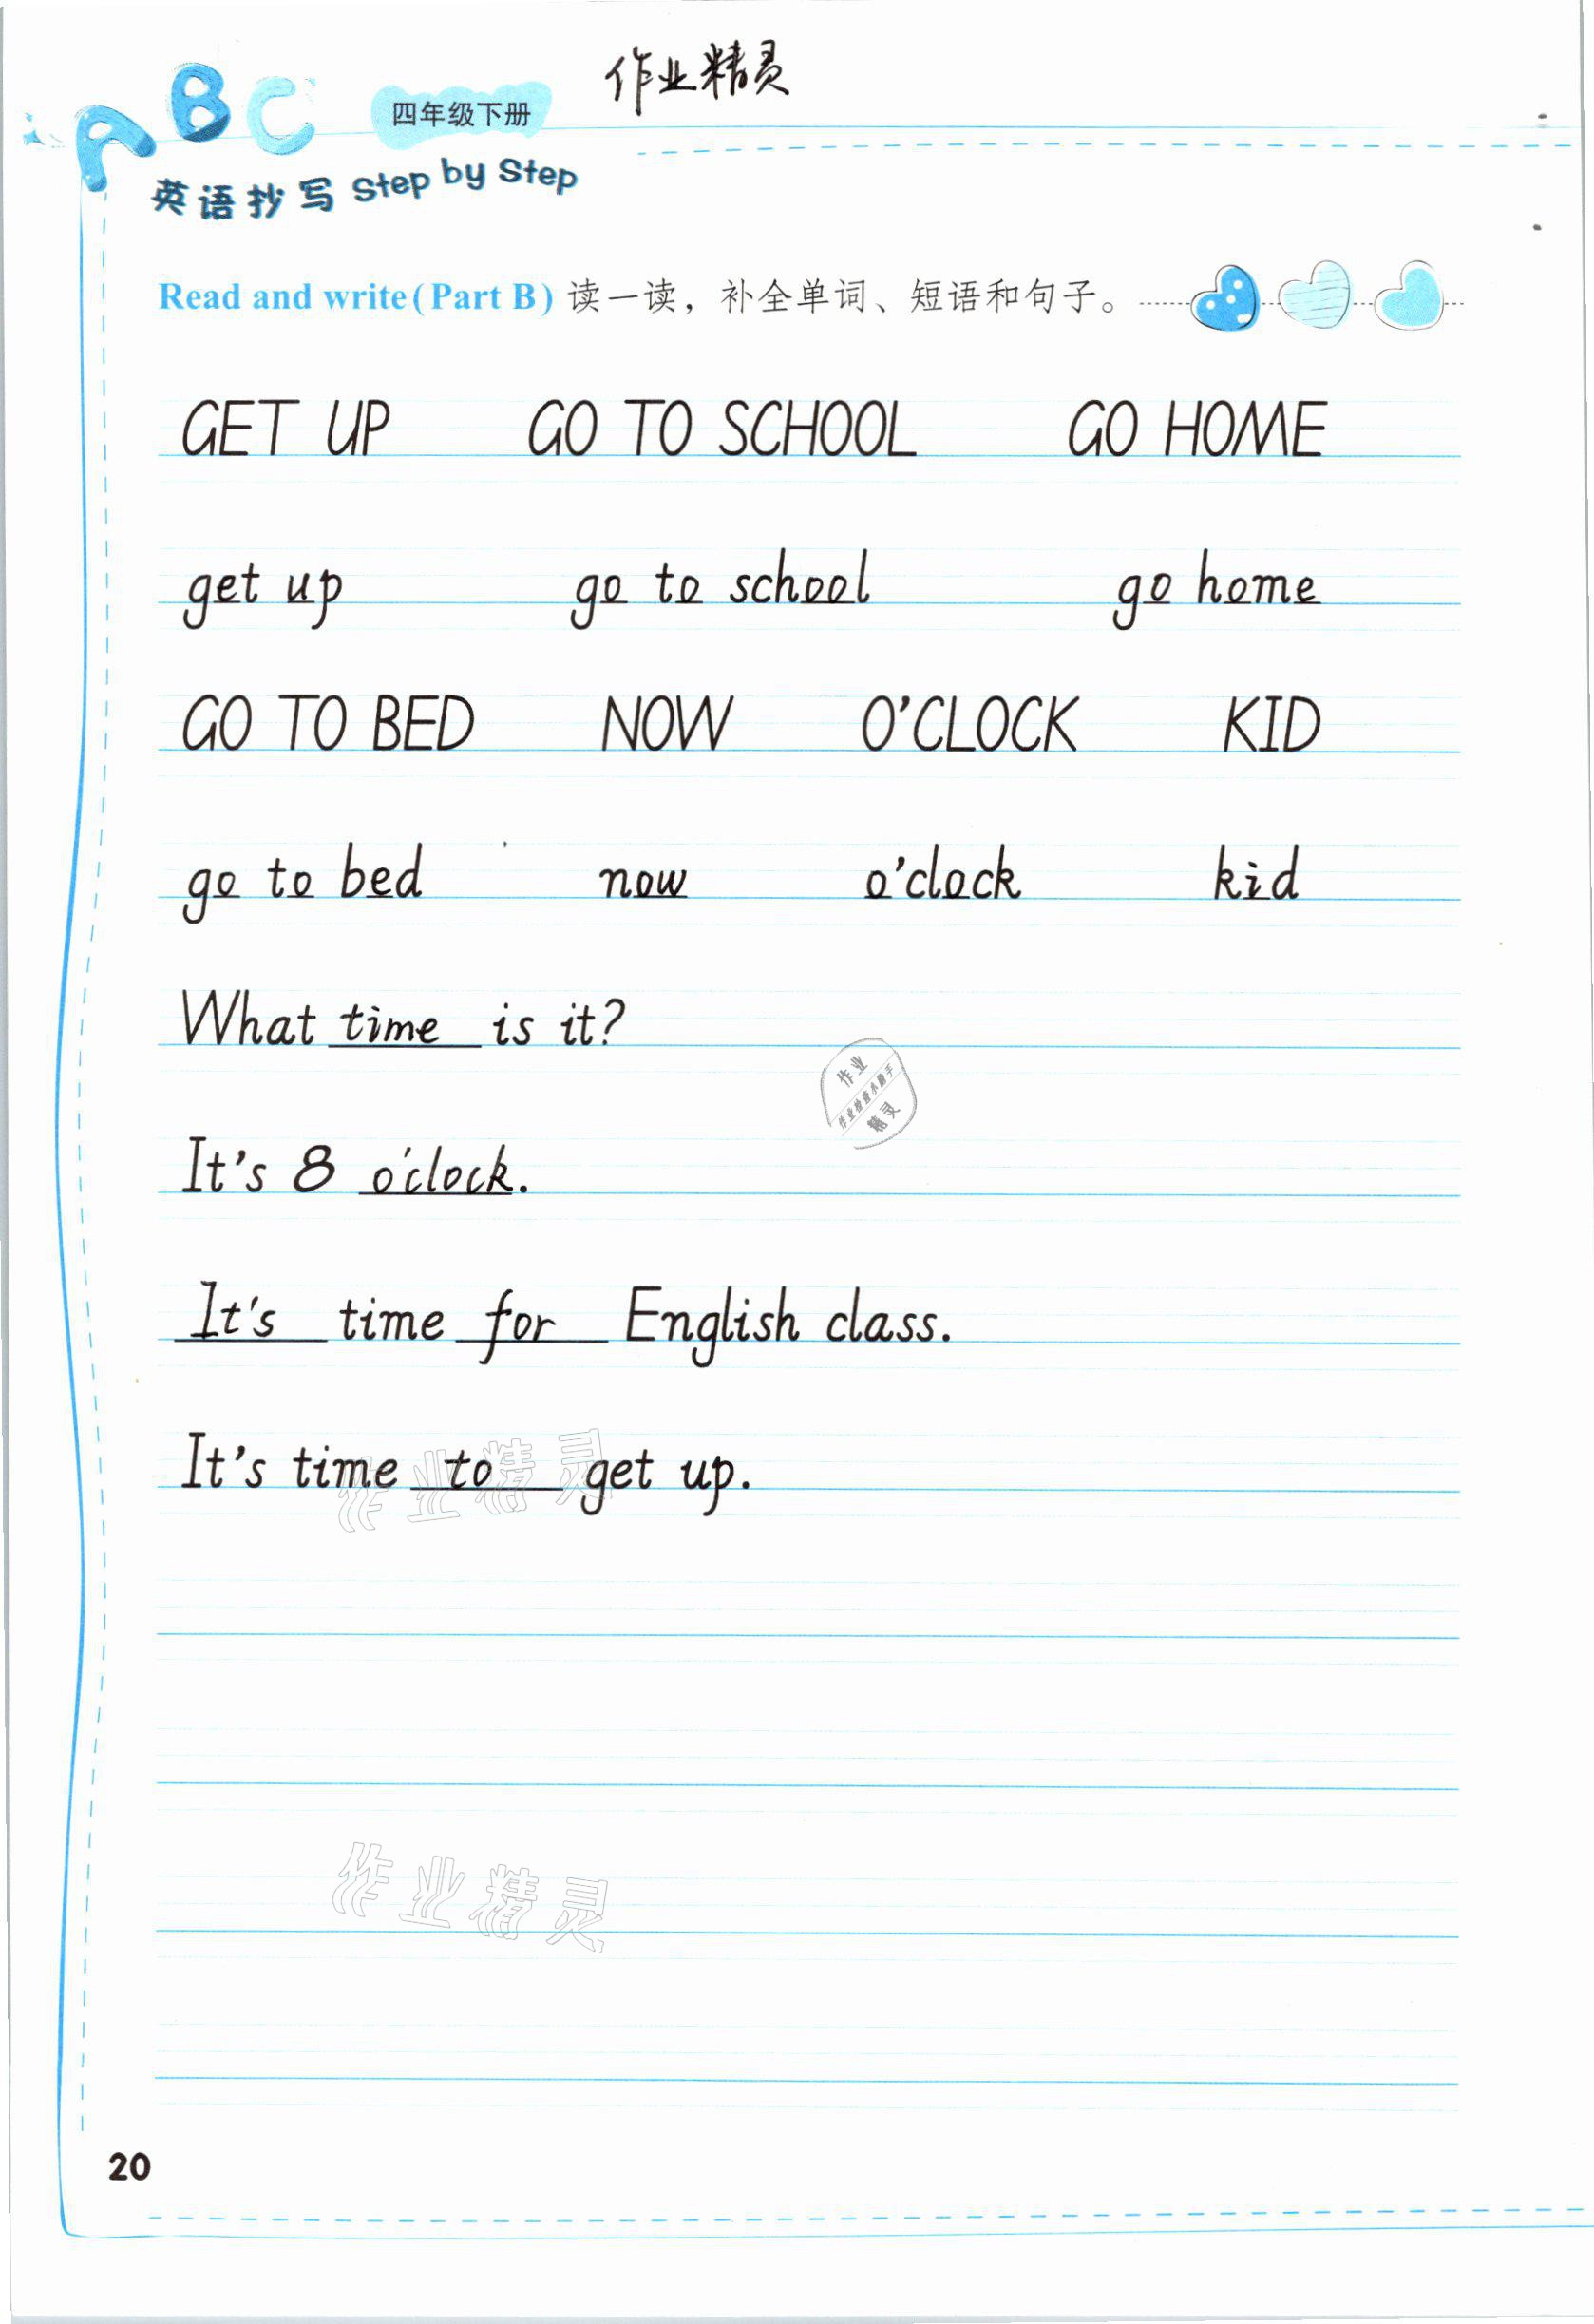 作业精灵
ABC
四年级下册
英语抄写 Step by Step
Read and write(Part B) 读一读，补全单词、短语和句子。
GET UP GO TO SCHOOL GO HOME
get up go to school go home
GO TO BED NOW O'CLOCK KID
go to bed now o'clock kid
What time is it?
作业
作业检查小助手
精灵
It's 8 o'clock.
It's time for English class.
It's time to get up.
作业精灵
作业精灵
20